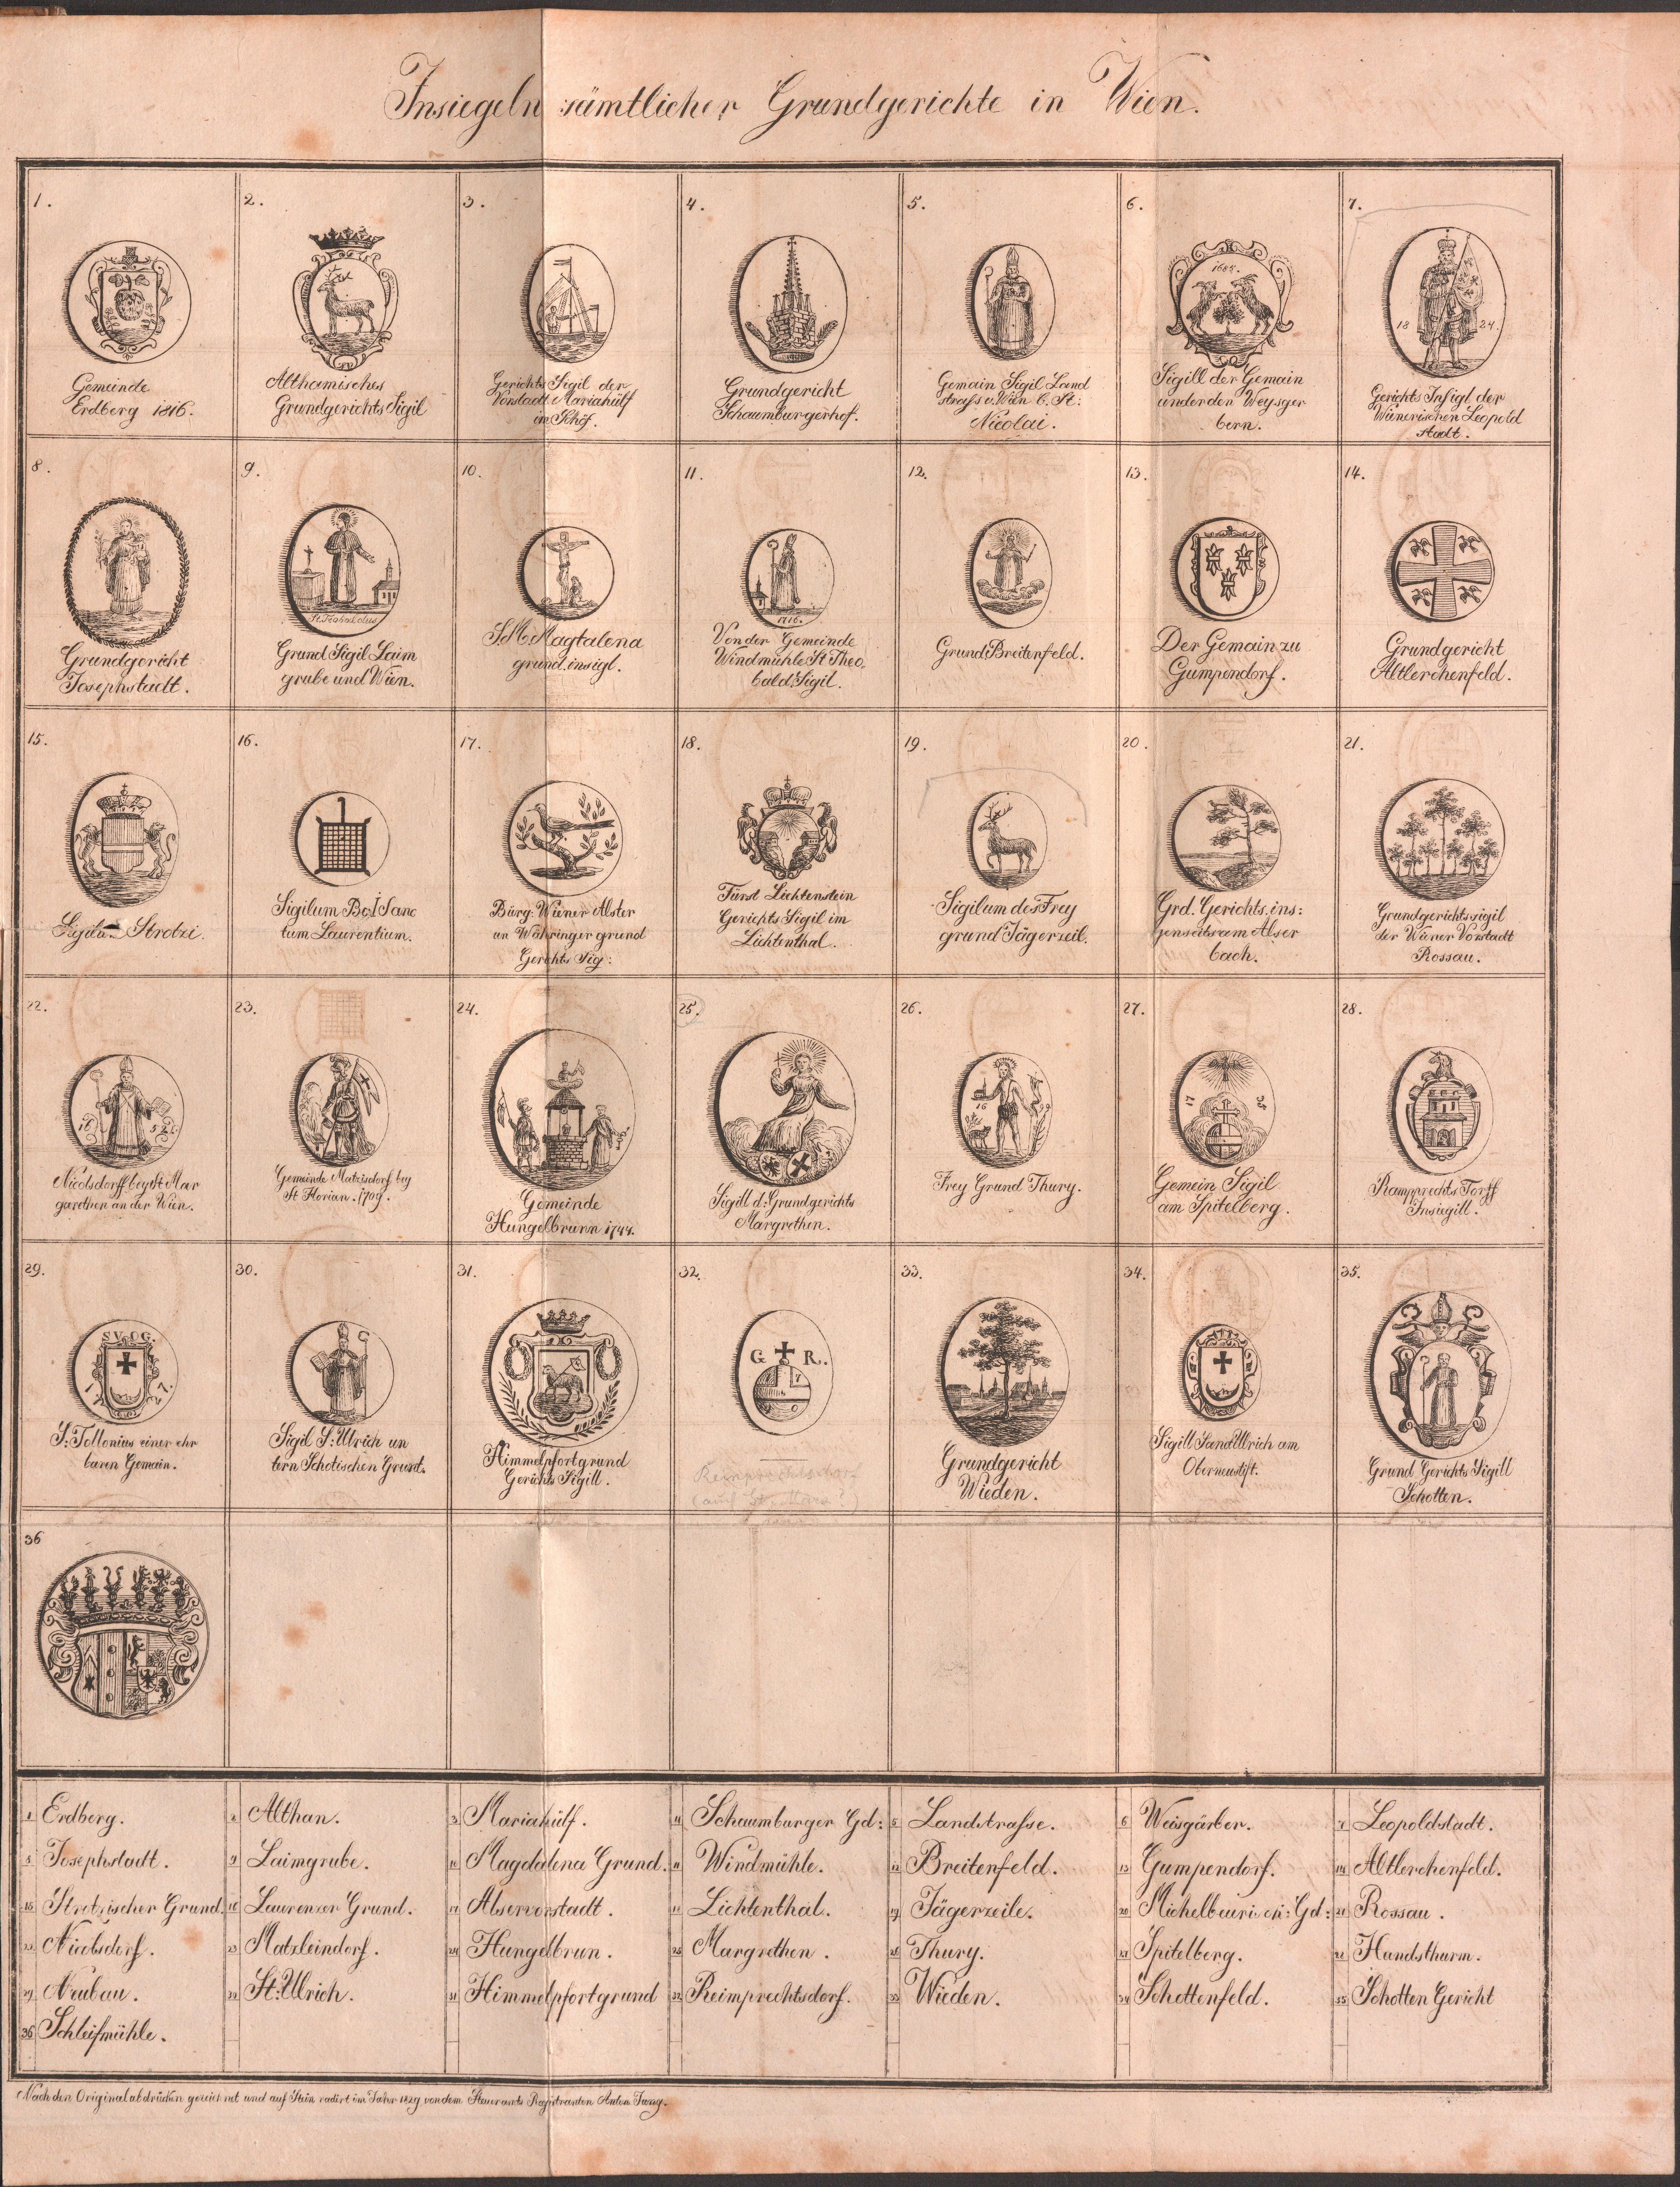 Insiegeln sämtlicher Grundgerichte in Wien.
1.
Gemeinde
Erdberg 1816.
2.
Althamisches
Grundgerichts Sigil
3.
Gerichts Sigil der
Vorstadt Mariahülf
im Schöf.
4.
Grundgericht
Schaumburgerhof.
5.
Gemain Sigil Land
strass v. Wien b. St:
Nicolai.
6.
1685.
Sigill der Gemain
under den Weysger
bern.
7.
18 24.
Gerichts Insigl der
Wienerischen Leopold
stadt.
8.
Grundgericht
Josephstadt.
9.
Grund Sigil Laim
grube und Wien.
10.
S. M. Magtalena
grund. insigl.
11.
1716.
Von der Gemeinde
Windmühle St Theo
bald. Sigil.
12.
Grund Breitenfeld.
13.
Der Gemain zu
Gumpendorf.
14.
Grundgericht
Altlerchenfeld.
15.
Strotzi.
16.
Sigilum Bey Sanc
tum Laurentium.
17.
Bürg: Wiener Alster
un Währinger grund
Gerichts Sig:
18.
Fürst Lichtenstein
Gerichts Sigil im
Lichtenthal.
19.
Sigilum des Frey
grund Jägerzeil.
20.
Grd. Gerichts. ins:
jenseits am Alser
bach.
21.
Grundgerichtssigil
der Wiener Vorstadt
Rossau.
22.
Nicolsdorff bey St Mar
garethen an der Wien.
23.
Gemeinde Matzisdorf bey
St Florian. 1709.
24.
Gemeinde
Hungelbrunn 1744.
25.
Sigill d: Grundgerichts
Margrethen.
26.
16
Frey Grund Thury.
27.
17 35
Gemein Sigil
am Spitelberg.
28.
Rampprechts Torff
Insiegill.
29.
S.V.O.G.
1 7 2 7.
S: Tollonius einer ehr
baren Gemain.
30.
Sigil S: Ulrich un
tern Schotischen Grund.
31.
Himmelpfortgrund
Gerichts Sigill.
32.
G R.
Reimprechtsdorf
33.
Grundgericht
Wieden.
34.
Sigill Sand Ulrich am
Oberneustift.
35.
Grund Gerichts Sigill
Schotten.
36
1 Erdberg.
2 Althan.
3 Mariahülf.
4 Schaumburger Gd:
5 Landstrasse.
6 Weisgärber.
7 Leopoldstadt.
8 Josephstadt.
9 Laimgrube.
10 Magdalena Grund.
11 Windmühle.
12 Breitenfeld.
13 Gumpendorf.
14 Altlerchenfeld.
15 Strotzischer Grund.
16 Laurenzer Grund.
17 Alservorstadt.
18 Lichtenthal.
19 Jägerzeile.
20 Michelbeurischer: Gd:
21 Rossau.
22 Nicolsdorf.
23 Matzleindorf.
24 Hungelbrun.
25 Margrethen.
26 Thury.
27 Spitelberg.
28 Hundsthurm.
29 Neubau.
30 St: Ulrich.
31 Himmelpfortgrund
32 Reimprechtsdorf.
33 Wieden.
34 Schottenfeld.
35 Schotten Gericht
36 Schleifmühle.
Nach den Originalabdrücken gezeichnet und auf Stein radirt im Jahr 1829 von dem Steueramts Registranten Anton Jung.